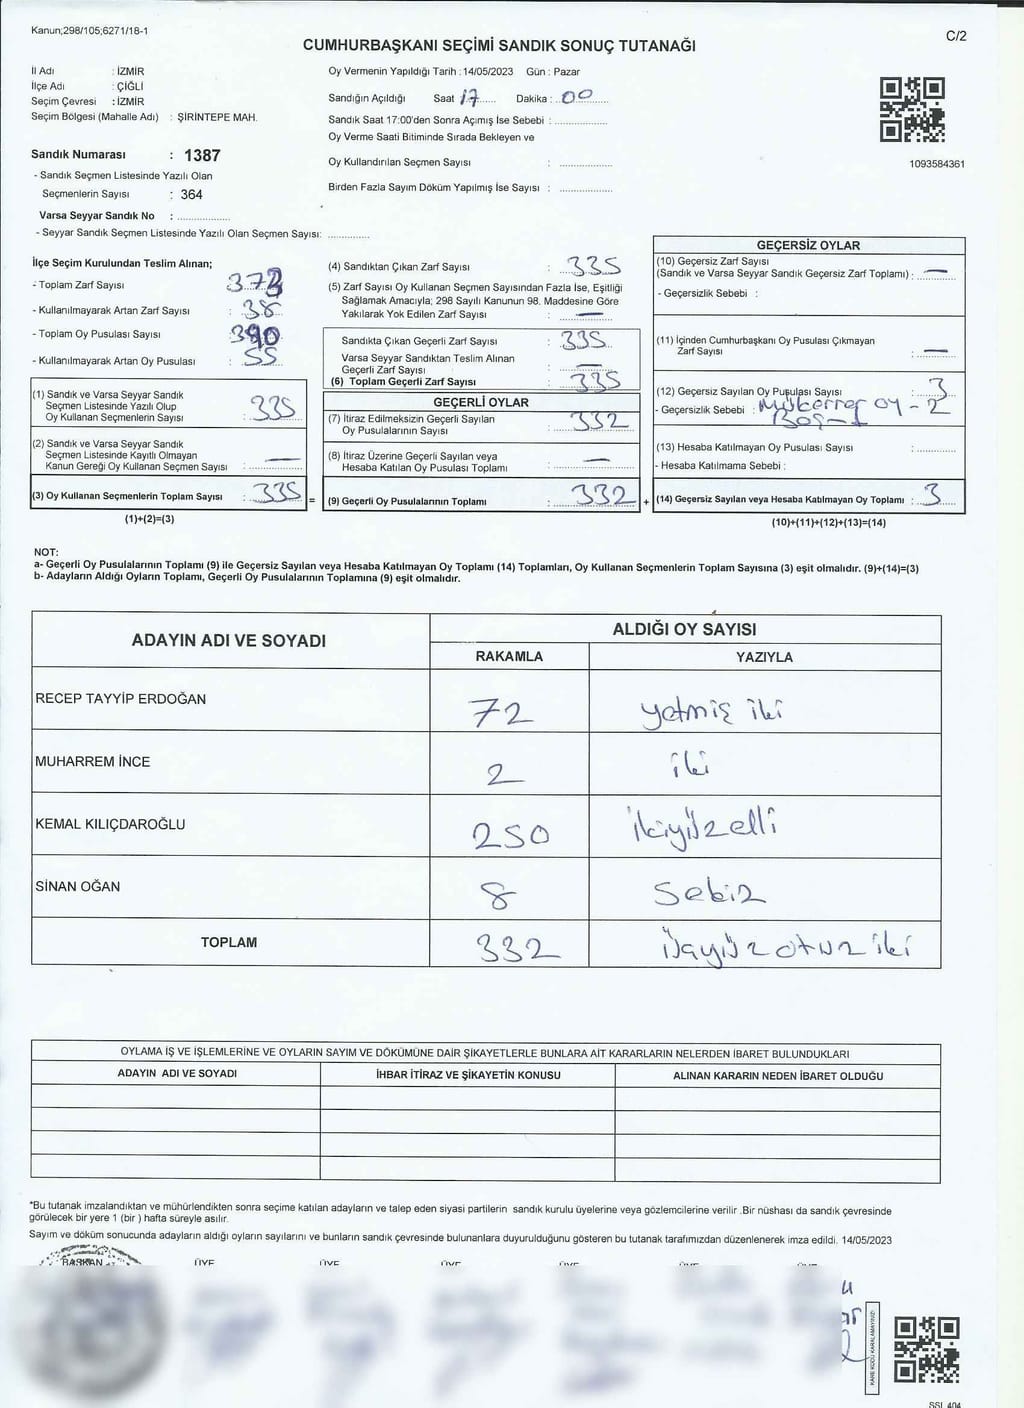 Kanun;298/105;6271/18-1
C/2
CUMHURBAŞKANI SEÇİMİ SANDIK SONUÇ TUTANAĞI
İl Adı : İZMİR
İlçe Adı : ÇİĞLİ
Seçim Çevresi : İZMİR
Seçim Bölgesi (Mahalle Adı) : ŞİRİNTEPE MAH.
Sandık Numarası : 1387
- Sandık Seçmen Listesinde Yazılı Olan
Seçmenlerin Sayısı : 364
Varsa Seyyar Sandık No : ...................
- Seyyar Sandık Seçmen Listesinde Yazılı Olan Seçmen Sayısı: ...............
Oy Vermenin Yapıldığı Tarih : 14/05/2023 Gün : Pazar
Sandığın Açıldığı Saat 17 Dakika : 00
Sandık Saat 17:00'den Sonra Açımış İse Sebebi : ...................
Oy Verme Saati Bitiminde Sırada Bekleyen ve
Oy Kullandırılan Seçmen Sayısı : ...................
Birden Fazla Sayım Döküm Yapılmış İse Sayısı : ...................
1093584361
İlçe Seçim Kurulundan Teslim Alınan;
- Toplam Zarf Sayısı : 373
- Kullanılmayarak Artan Zarf Sayısı : 38
- Toplam Oy Pusulası Sayısı : 390
- Kullanılmayarak Artan Oy Pusulası : 55
(1) Sandık ve Varsa Seyyar Sandık
Seçmen Listesinde Yazılı Olup
Oy Kullanan Seçmenlerin Sayısı : 335
(2) Sandık ve Varsa Seyyar Sandık
Seçmen Listesinde Kayıtlı Olmayan
Kanun Gereği Oy Kullanan Seçmen Sayısı : —
(3) Oy Kullanan Seçmenlerin Toplam Sayısı : 335 =
(1)+(2)=(3)
(4) Sandıktan Çıkan Zarf Sayısı : 335
(5) Zarf Sayısı Oy Kullanan Seçmen Sayısından Fazla İse, Eşitliği
Sağlamak Amacıyla; 298 Sayılı Kanunun 98. Maddesine Göre
Yakılarak Yok Edilen Zarf Sayısı : —
Sandıkta Çıkan Geçerli Zarf Sayısı : 335
Varsa Seyyar Sandıktan Teslim Alınan
Geçerli Zarf Sayısı : —
(6) Toplam Geçerli Zarf Sayısı : 335
GEÇERLİ OYLAR
(7) İtiraz Edilmeksizin Geçerli Sayılan
Oy Pusulalarının Sayısı : 332
(8) İtiraz Üzerine Geçerli Sayılan veya
Hesaba Katılan Oy Pusulası Toplamı : —
(9) Geçerli Oy Pusulalarının Toplamı : 332 +
GEÇERSİZ OYLAR
(10) Geçersiz Zarf Sayısı
(Sandık ve Varsa Seyyar Sandık Geçersiz Zarf Toplamı) : —
- Geçersizlik Sebebi :
(11) İçinden Cumhurbaşkanı Oy Pusulası Çıkmayan
Zarf Sayısı : —
(12) Geçersiz Sayılan Oy Pusulası Sayısı : 3
- Geçersizlik Sebebi : Mükerrer oy - 2
Boş - 1
(13) Hesaba Katılmayan Oy Pusulası Sayısı : ............
- Hesaba Katılmama Sebebi :
(14) Geçersiz Sayılan veya Hesaba Katılmayan Oy Toplamı : 3
(10)+(11)+(12)+(13)=(14)
NOT:
a- Geçerli Oy Pusulalarının Toplamı (9) ile Geçersiz Sayılan veya Hesaba Katılmayan Oy Toplamı (14) Toplamları, Oy Kullanan Seçmenlerin Toplam Sayısına (3) eşit olmalıdır. (9)+(14)=(3)
b- Adayların Aldığı Oyların Toplamı, Geçerli Oy Pusulalarının Toplamına (9) eşit olmalıdır.
ADAYIN ADI VE SOYADI
ALDIĞI OY SAYISI
RAKAMLA YAZIYLA
RECEP TAYYİP ERDOĞAN 72 yetmiş iki
MUHARREM İNCE 2 iki
KEMAL KILIÇDAROĞLU 250 ikiyüzelli
SİNAN OĞAN 8 Sekiz
TOPLAM 332 üçyüzotuziki
OYLAMA İŞ VE İŞLEMLERİNE VE OYLARIN SAYIM VE DÖKÜMÜNE DAİR ŞİKAYETLERLE BUNLARA AİT KARARLARIN NELERDEN İBARET BULUNDUKLARI
ADAYIN ADI VE SOYADI İHBAR İTİRAZ VE ŞİKAYETİN KONUSU ALINAN KARARIN NEDEN İBARET OLDUĞU
*Bu tutanak imzalandıktan ve mühürlendikten sonra seçime katılan adayların ve talep eden siyasi partilerin sandık kurulu üyelerine veya gözlemcilerine verilir .Bir nüshası da sandık çevresinde
görülecek bir yere 1 (bir ) hafta süreyle asılır.
Sayım ve döküm sonucunda adayların aldığı oyların sayılarını ve bunların sandık çevresinde bulunanlara duyurulduğunu gösteren bu tutanak tarafımızdan düzenlenerek imza edildi. 14/05/2023
BAŞKAN ÜYE ÜYE ÜYE ÜYE ÜYE ÜYE
KARE KODU KARALAMAYINIZ!
SSI 404